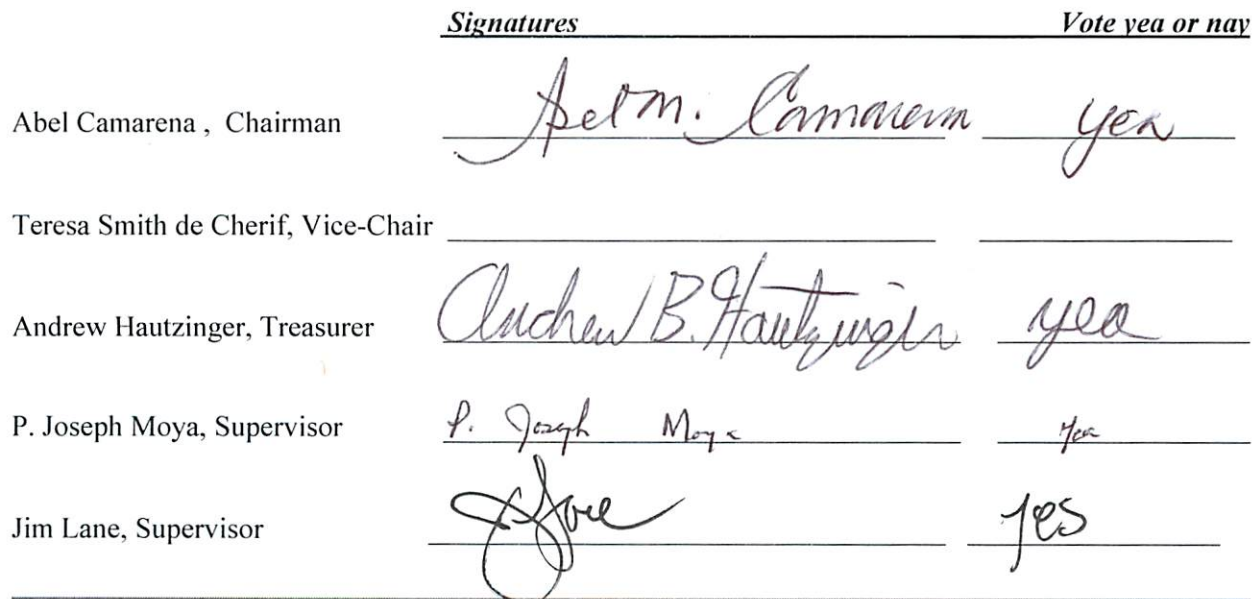 Signatures Vote yea or nay
Abel Camarena , Chairman Abel M. Camarena yea
Teresa Smith de Cherif, Vice-Chair
Andrew Hautzinger, Treasurer Andrew B. Hautzinger yea
P. Joseph Moya, Supervisor P. Joseph Moya Yea
Jim Lane, Supervisor yes